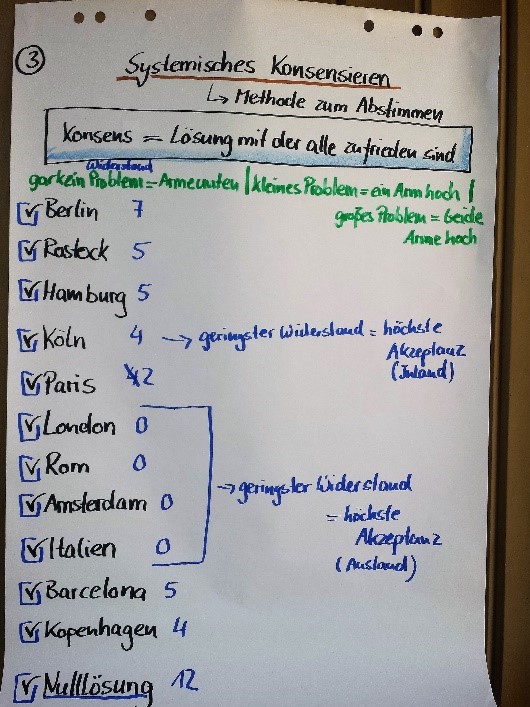 3
Systemisches Konsensieren
↳ Methode zum Abstimmen
Konsens = Lösung mit der alle zufrieden sind
Widerstand
gar kein Problem = Arme unten | kleines Problem = ein Arm hoch |
großes Problem = beide
Arme hoch
Berlin 7
Rostock 5
Hamburg 5
Köln 4 → geringster Widerstand = höchste
Akzeptanz
(Inland)
Paris 2
London 0
Rom 0
Amsterdam 0
Italien 0
→ geringster Widerstand
= höchste
Akzeptanz
(Ausland)
Barcelona 5
Kopenhagen 4
Nulllösung 12